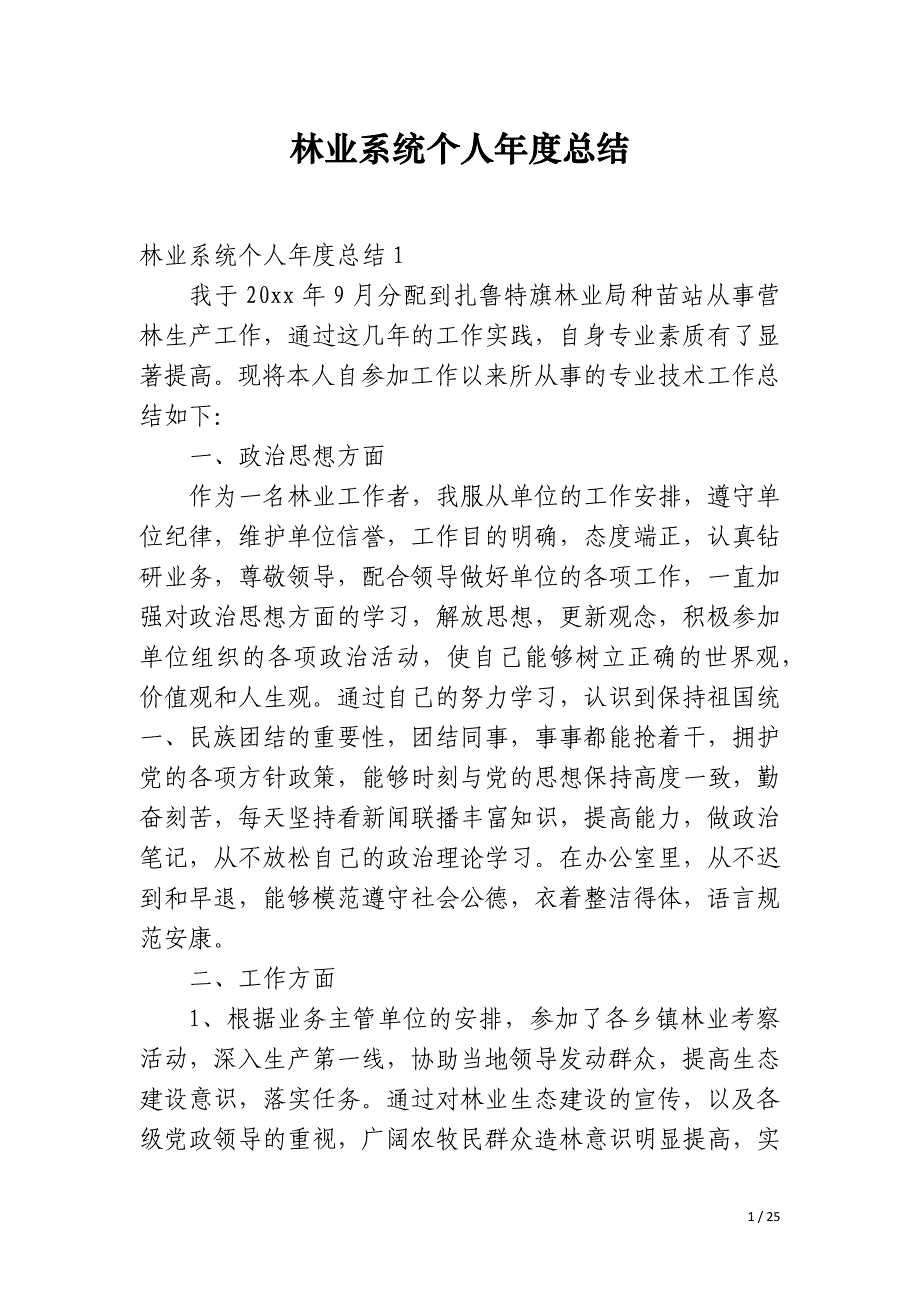 林业系统个人年度总结
林业系统个人年度总结1
我于20xx年9月分配到扎鲁特旗林业局种苗站从事营
林生产工作，通过这几年的工作实践，自身专业素质有了显
著提高。现将本人自参加工作以来所从事的专业技术工作总
结如下：
一、政治思想方面
作为一名林业工作者，我服从单位的工作安排，遵守单
位纪律，维护单位信誉，工作目的明确，态度端正，认真钻
研业务，尊敬领导，配合领导做好单位的各项工作，一直加
强对政治思想方面的学习，解放思想，更新观念，积极参加
单位组织的各项政治活动，使自己能够树立正确的世界观，
价值观和人生观。通过自己的努力学习，认识到保持祖国统
一、民族团结的重要性，团结同事，事事都能抢着干，拥护
党的各项方针政策，能够时刻与党的思想保持高度一致，勤
奋刻苦，每天坚持看新闻联播丰富知识，提高能力，做政治
笔记，从不放松自己的政治理论学习。在办公室里，从不迟
到和早退，能够模范遵守社会公德，衣着整洁得体，语言规
范安康。
二、工作方面
1、根据业务主管单位的安排，参加了各乡镇林业考察
活动，深入生产第一线，协助当地领导发动群众，提高生态
建设意识，落实任务。通过对林业生态建设的宣传，以及各
级党政领导的重视，广阔农牧民群众造林意识明显提高，实
1 / 25